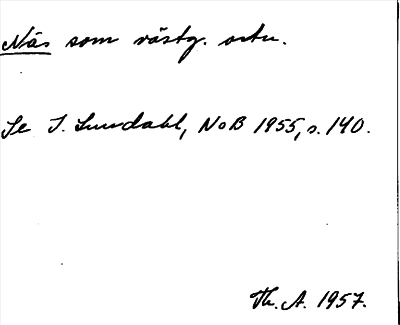 Näs som västg. ortn.
Se I. Lundahl, NoB 1955, s. 140.
Th. A. 1957.